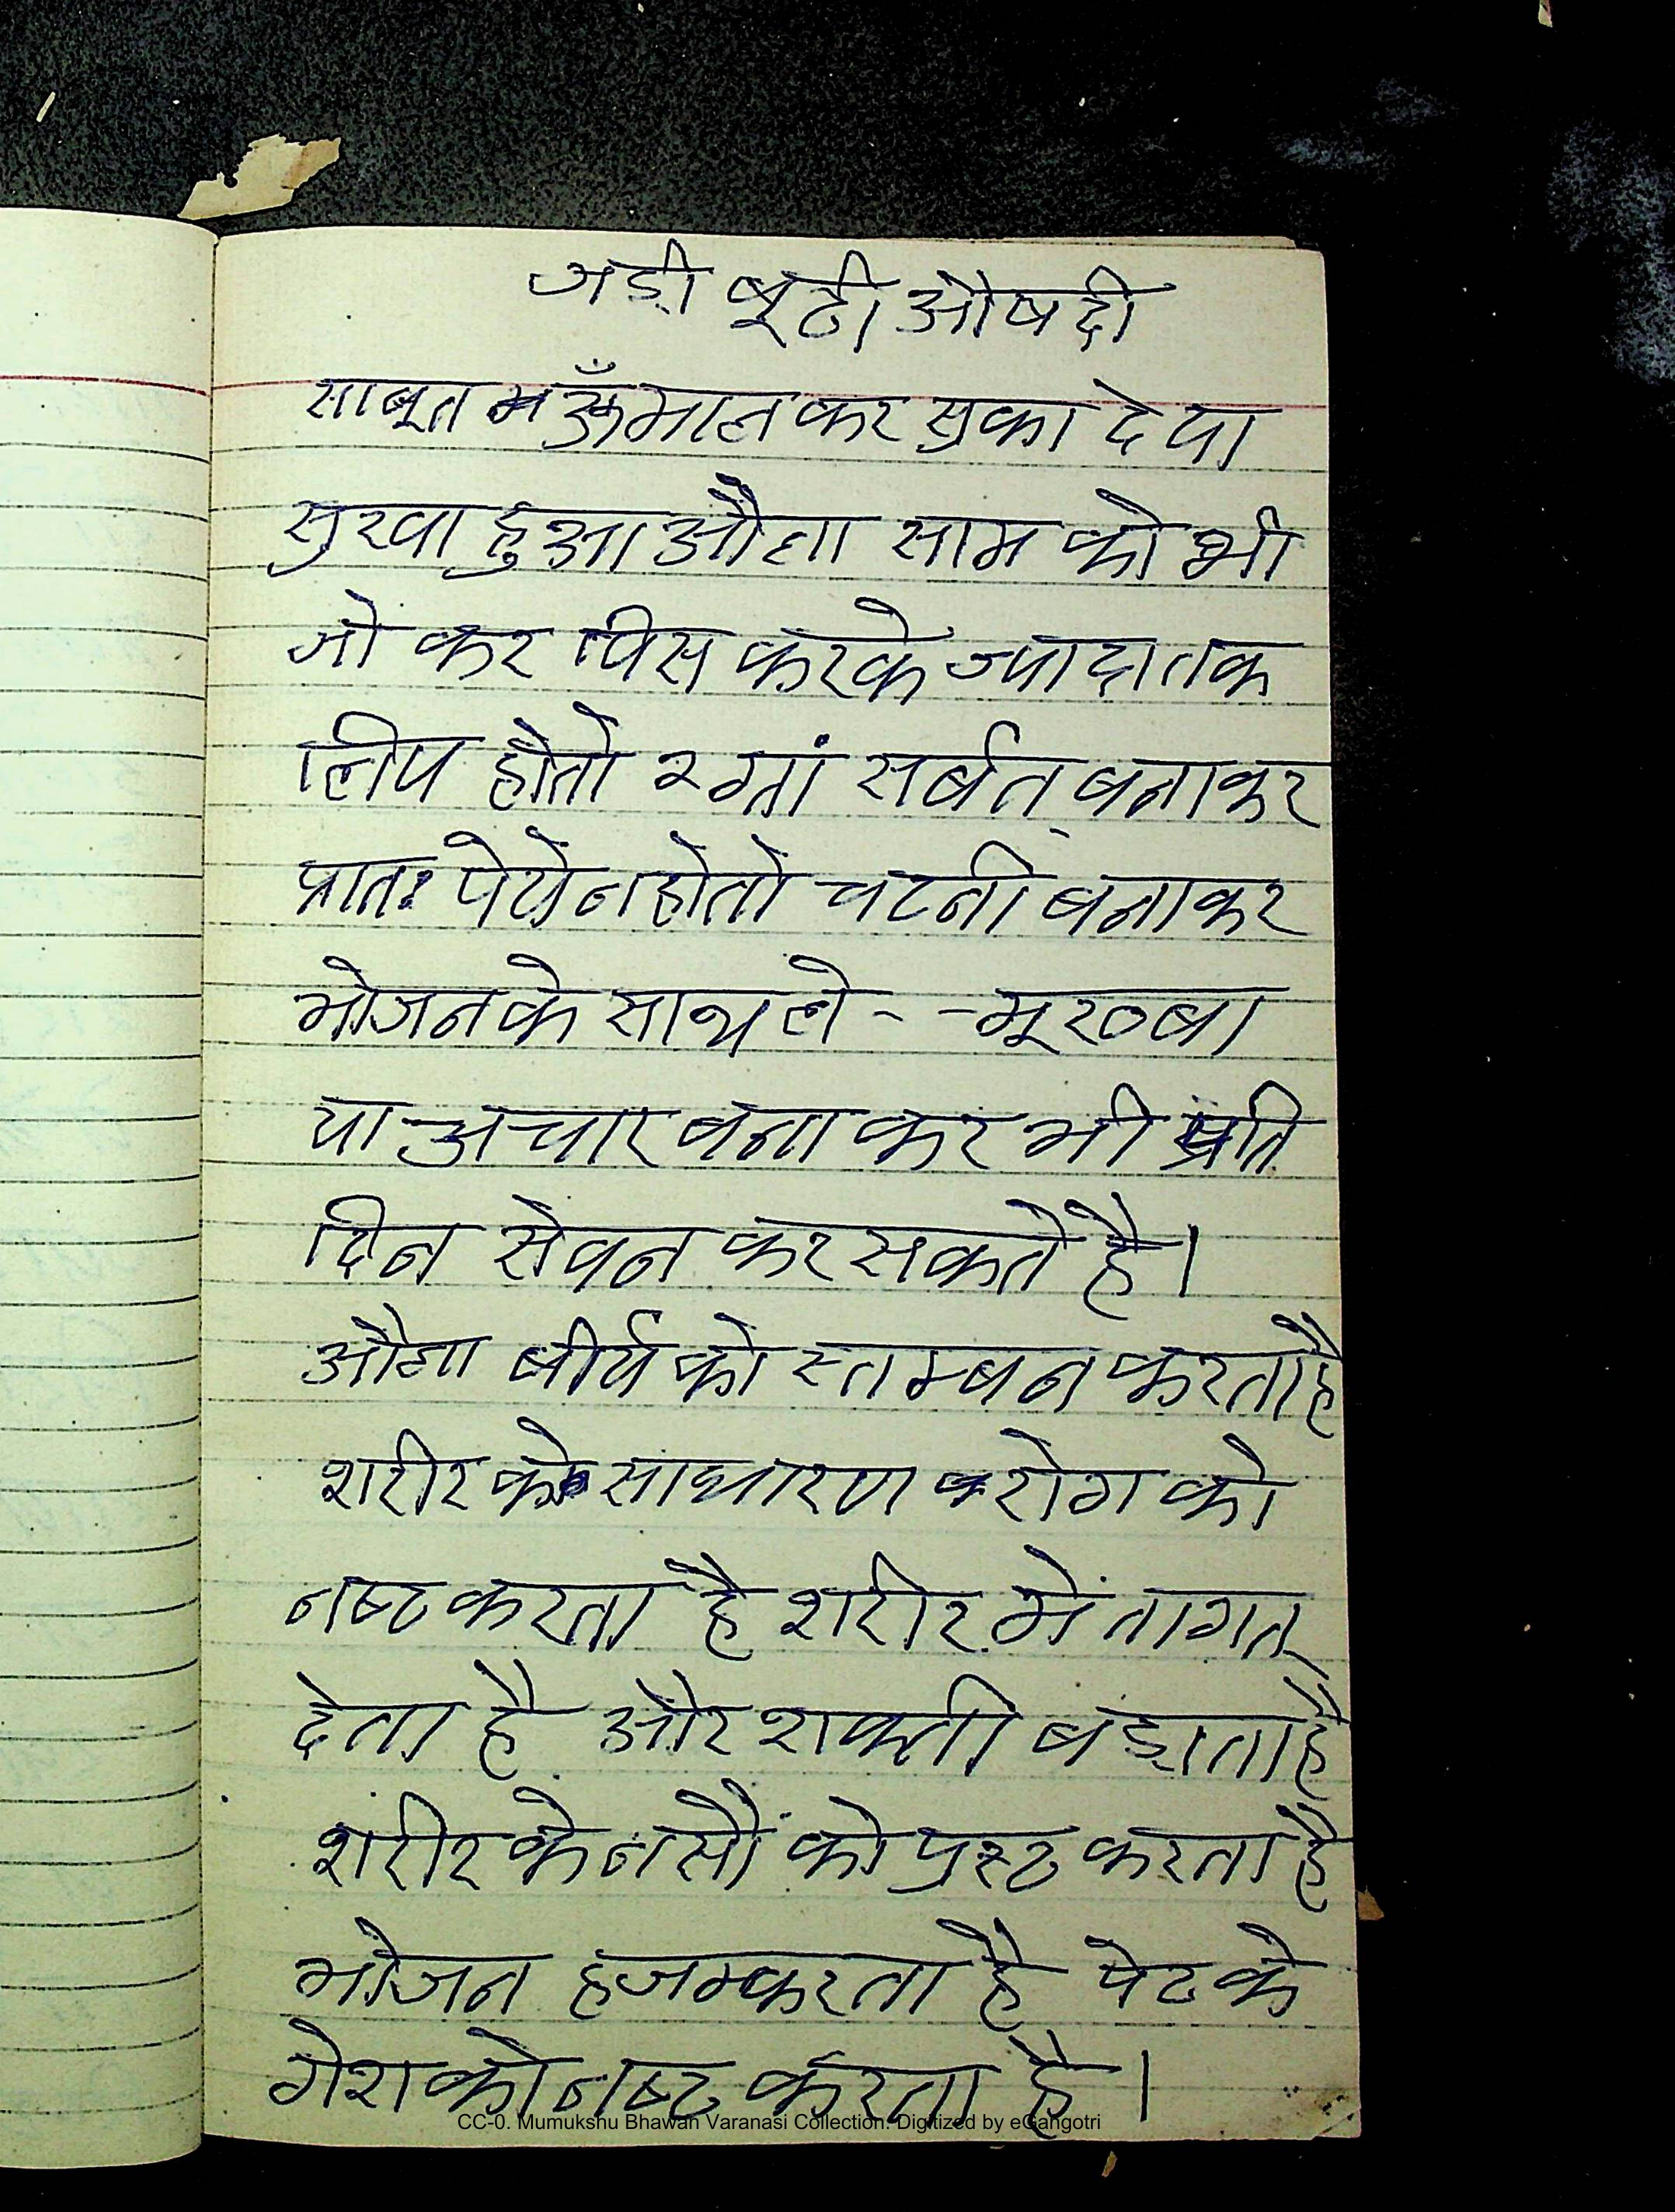 जड़ी बूटी औषदी
साबूत कर सुका दे या
सुखा हुआ औला साम को भी
जो कर पिस करके ज्यादा तक
लिप होतो २ गा सर्बत बनाकर
प्रातः पेये न होतो चटनी बनाकर
भोजन के साथ ले - - मूरव्बा
या अचार बना कर भी प्रति
दिन सेवन कर सकते है।
औला बीर्य को स्तम्बन करता है
शरीर के साधारण रोग को
नष्ट करता है शरीर में तागत
देता है और शक्ती बड़ाता है
शरीर के नसौं को प्रस्ट करता है
भोजन हजम्करता है पेट के
गेश को नष्ट करता है।
CC-0. Mumukshu Bhawan Varanasi Collection. Digitized by eGangotri